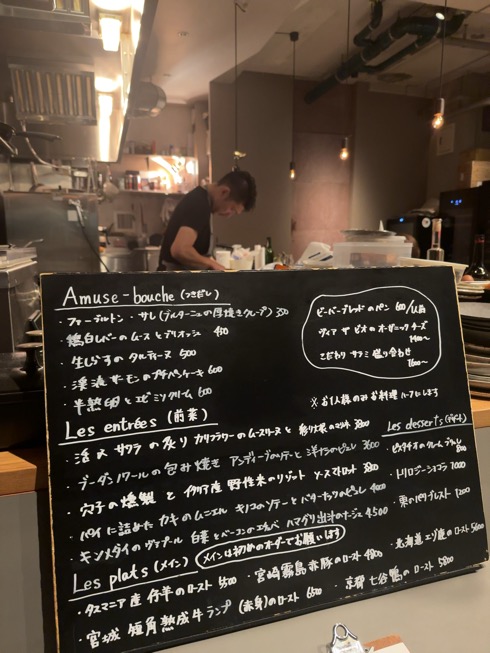 Amuse-bouche (つきだし)
・ファーブルトン・サレ (ブルターニュの厚焼きクレープ) 350
・鶏白レバーのムースとブリオッシュ 450
・生しらすのタルティーヌ 500
・サーモンのプチパンケーキ 600
・半熟卵とエビミソクリーム 600
ビーバーブレッドのパン 600/1人前
ヴィア ザ ビオのオーガニックチーズ
1400〜
こだわりサラミ盛り合わせ
1600〜
※お1人様のみお料理ハーフにします
Les entrées (前菜)
・活〆サワラの炙り カリフラワーのムースリーヌと彩り大根の 3800
・ブーダンノワールの包み焼き アンディーブのソテーと洋ナシのピュレ 3600
・穴子の燻製とイタリア産野性米のリゾット ソースマトロット 3800
・パイに詰めたカキのムニエル キノコのソテーとバターナッツのピュレ 4000
・キンメダイのヴァプール 白菜とベーコンのエチュベ ハマグリ出汁のナージュ 4500
Les desserts (デザート)
・ピスタチオのクレームブリュレ
800
・トリロジーショコラ 1000
・栗のパリブレスト 1200
Les plats (メイン) メインは初めのオーダーでお願いします
・タスマニア産仔羊のロースト 5500
・宮崎霧島赤豚のロースト 4800
・北海道エゾ鹿のロースト 5600
・宮城 短角熟成牛ランプ (赤身) のロースト 6500
・京都七谷鴨のロースト 5800